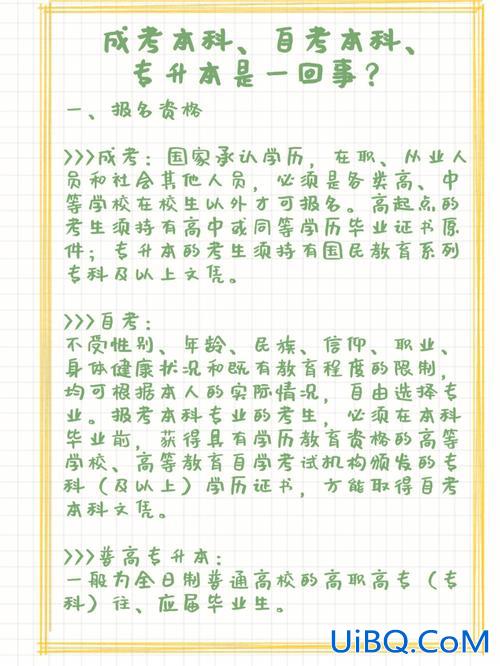 成考本科、自考本科、
专升本是一回事？
一、报名资格
>>>成考：国家承认学历，在职、从业人
员和社会其他人员，必须是各类高、中
等学校在校生以外才可报名。高起点的
考生须持有高中或同等学历毕业证书原
件；专升本的考生须持有国民教育系列
专科及以上文凭。
>>>自考：
不受性别、年龄、民族、信仰、职业、
身体健康状况和既有教育程度的限制，
均可根据本人的实际情况，自由选择专
业。报考本科专业的考生，必须在本科
毕业前，获得具有学历教育资格的高等
学校、高等教育自学考试机构颁发的专
科（及以上）学历证书，方能取得自考
本科文凭。
>>>普高专升本：
一般为全日制普通高校的高职高专（专
科）往、应届毕业生。
UiBQ.CoM